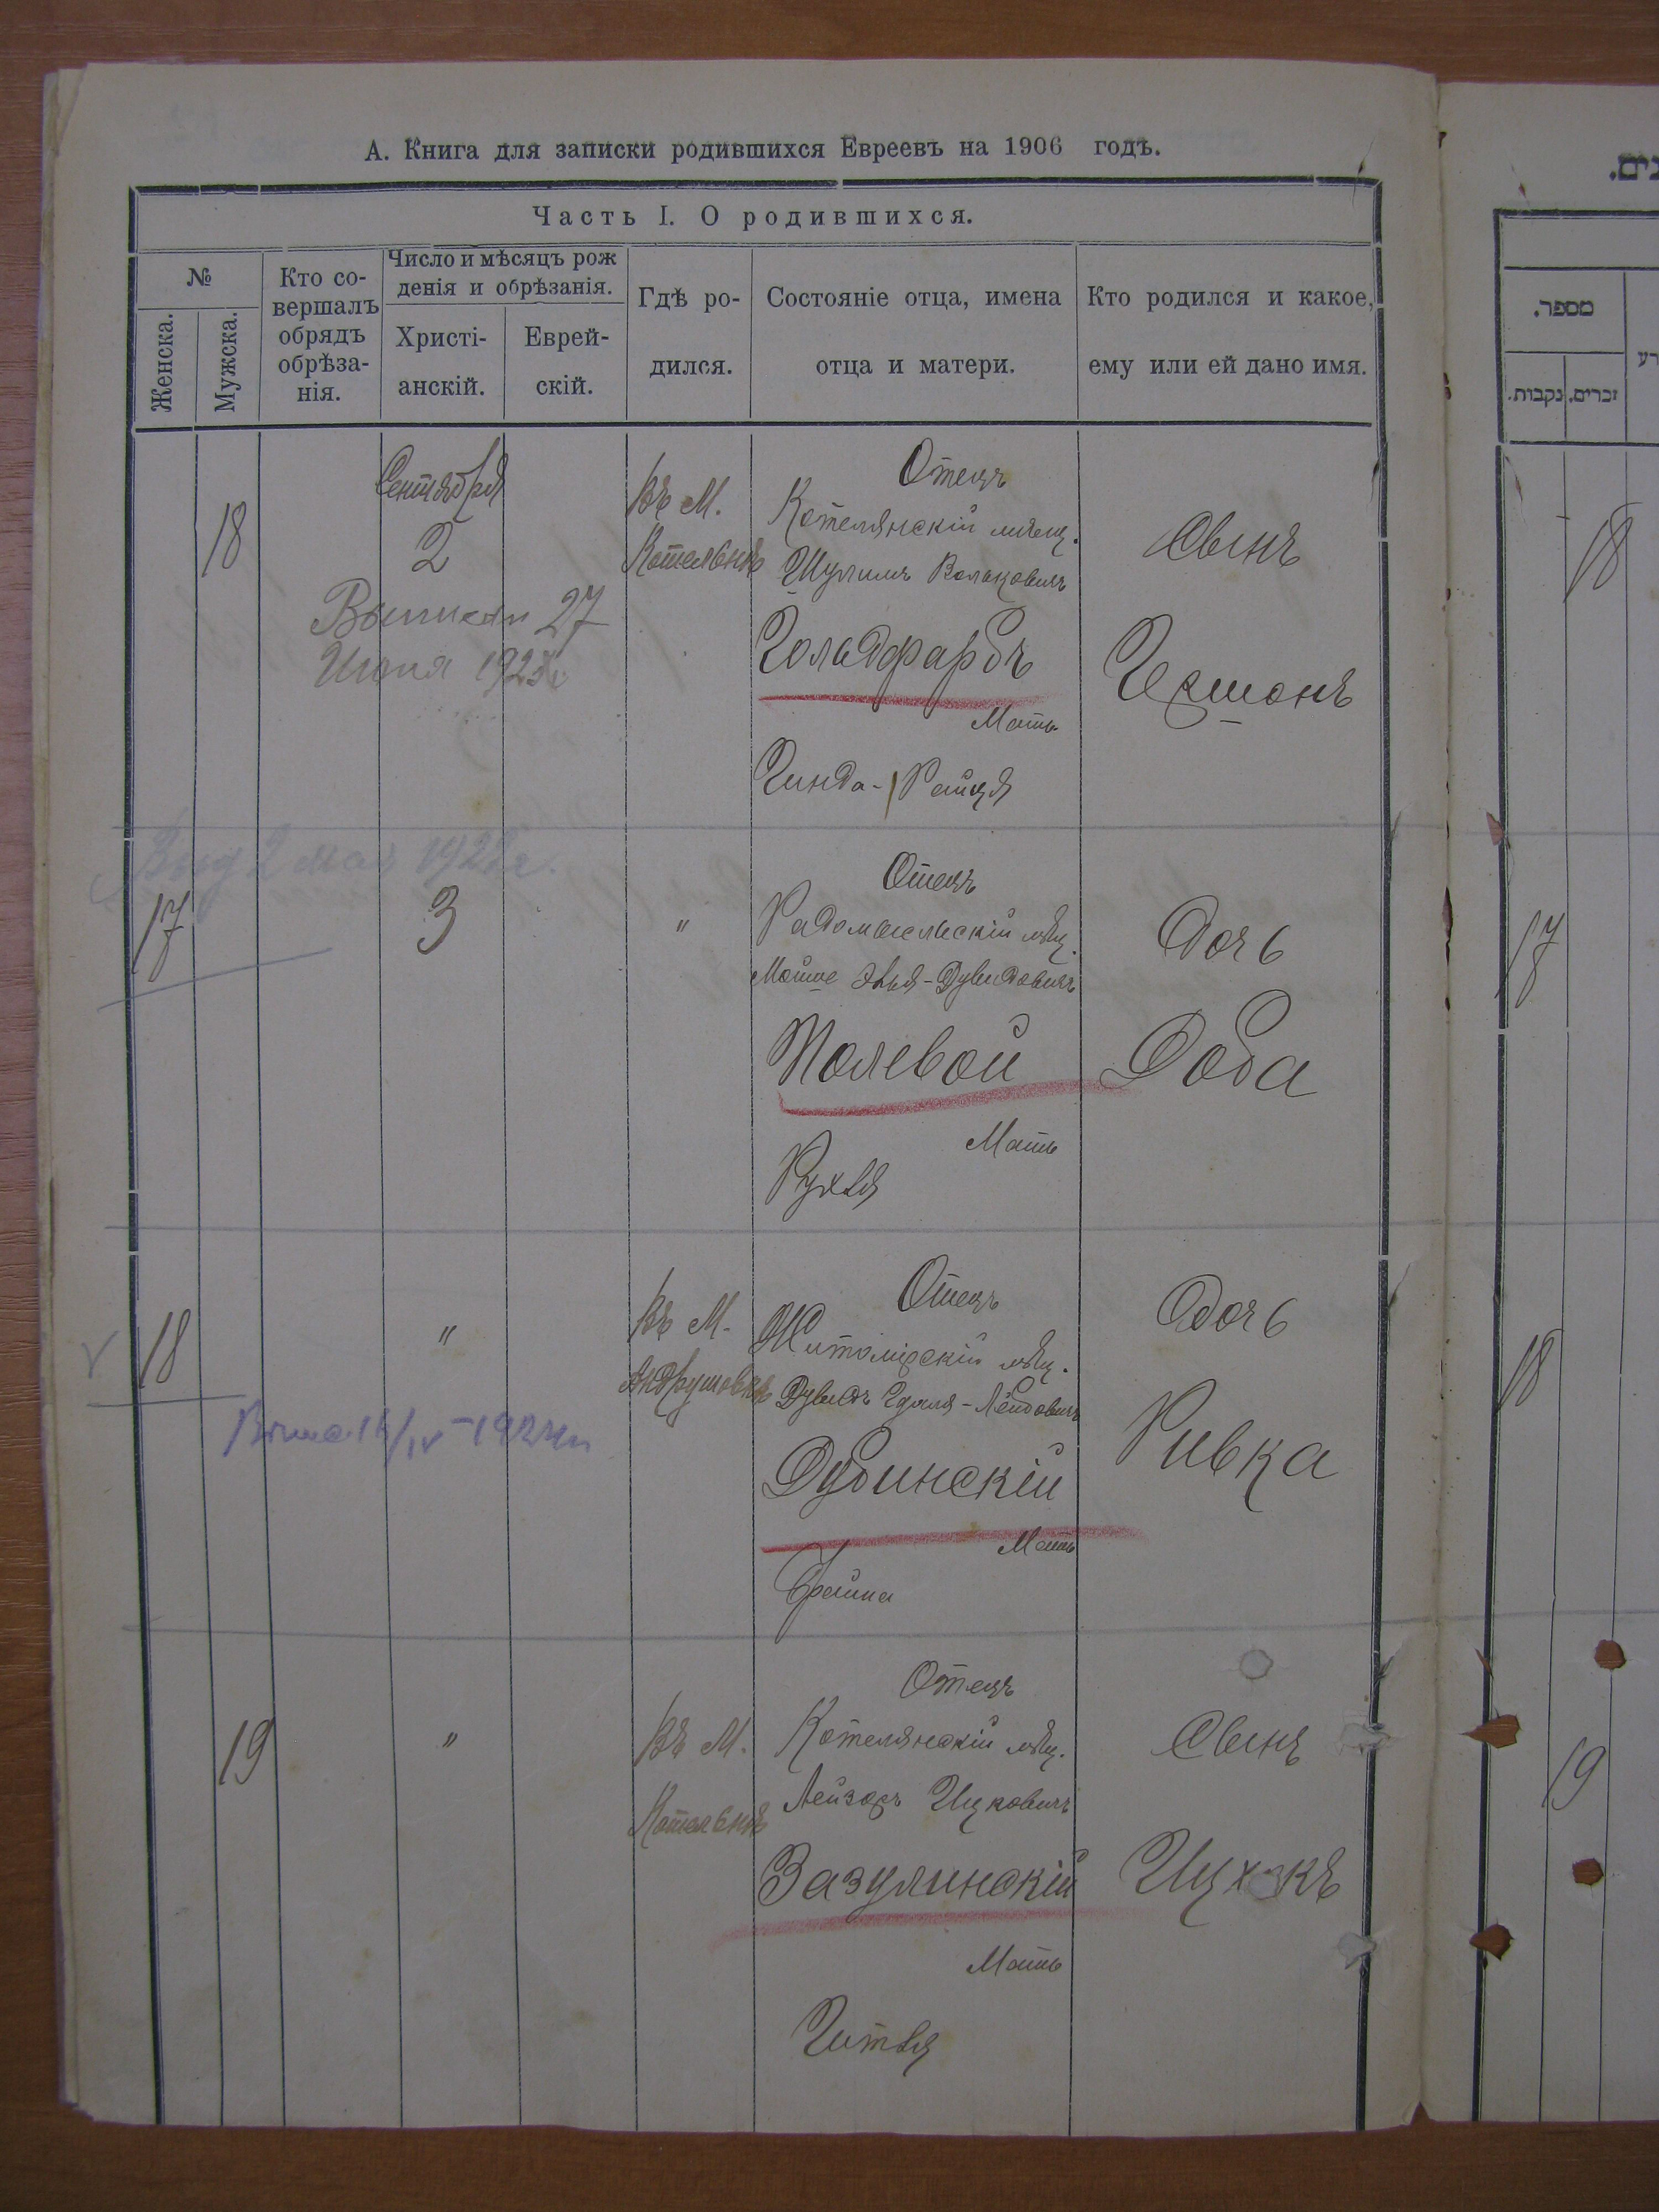 А. Книга для записки родившихся Евреевъ на 1906 годъ.
Часть I. О родившихся.
№
Женска.
Мужска.
Кто со-
вершалъ
обрядъ
обрѣза-
нія.
Число и мѣсяцъ рож
денія и обрѣзанія.
Христі-
анскій.
Еврей-
скій.
Гдѣ ро-
дился.
Состояніе отца, имена
отца и матери.
Кто родился и какое,
ему или ей дано имя.
18
Сентября
2
Въ М.
Котельнѣ
Отецъ
Котелянскій мѣщ.
Шулимъ Вольковичъ
Гольдфарбъ
Мать
Гинда-Райця
Сынъ
Гершонъ
27
Июня
17
3
"
Отецъ
Радомысльскій мѣщ.
Мойше Эля-Дувидовичъ
Полевой
Мать
Рухля
Дочь
Доба
2 мая
18
"
Въ М.
Андрушовкѣ
Отецъ
Житомірскій мѣщ.
Дувидъ Гдаля-Лейбовичъ
Дубинскій
Мать
Фрейма
Дочь
Ривка
19
"
Въ М.
Котельнѣ
Отецъ
Котелянскій мѣщ.
Лейзоръ Ицковичъ
Зазулинскій
Мать
Гитля
Сынъ
Ицхокъ
ים.
מספר.
זכרים.
נקבות.
18
17
18
19